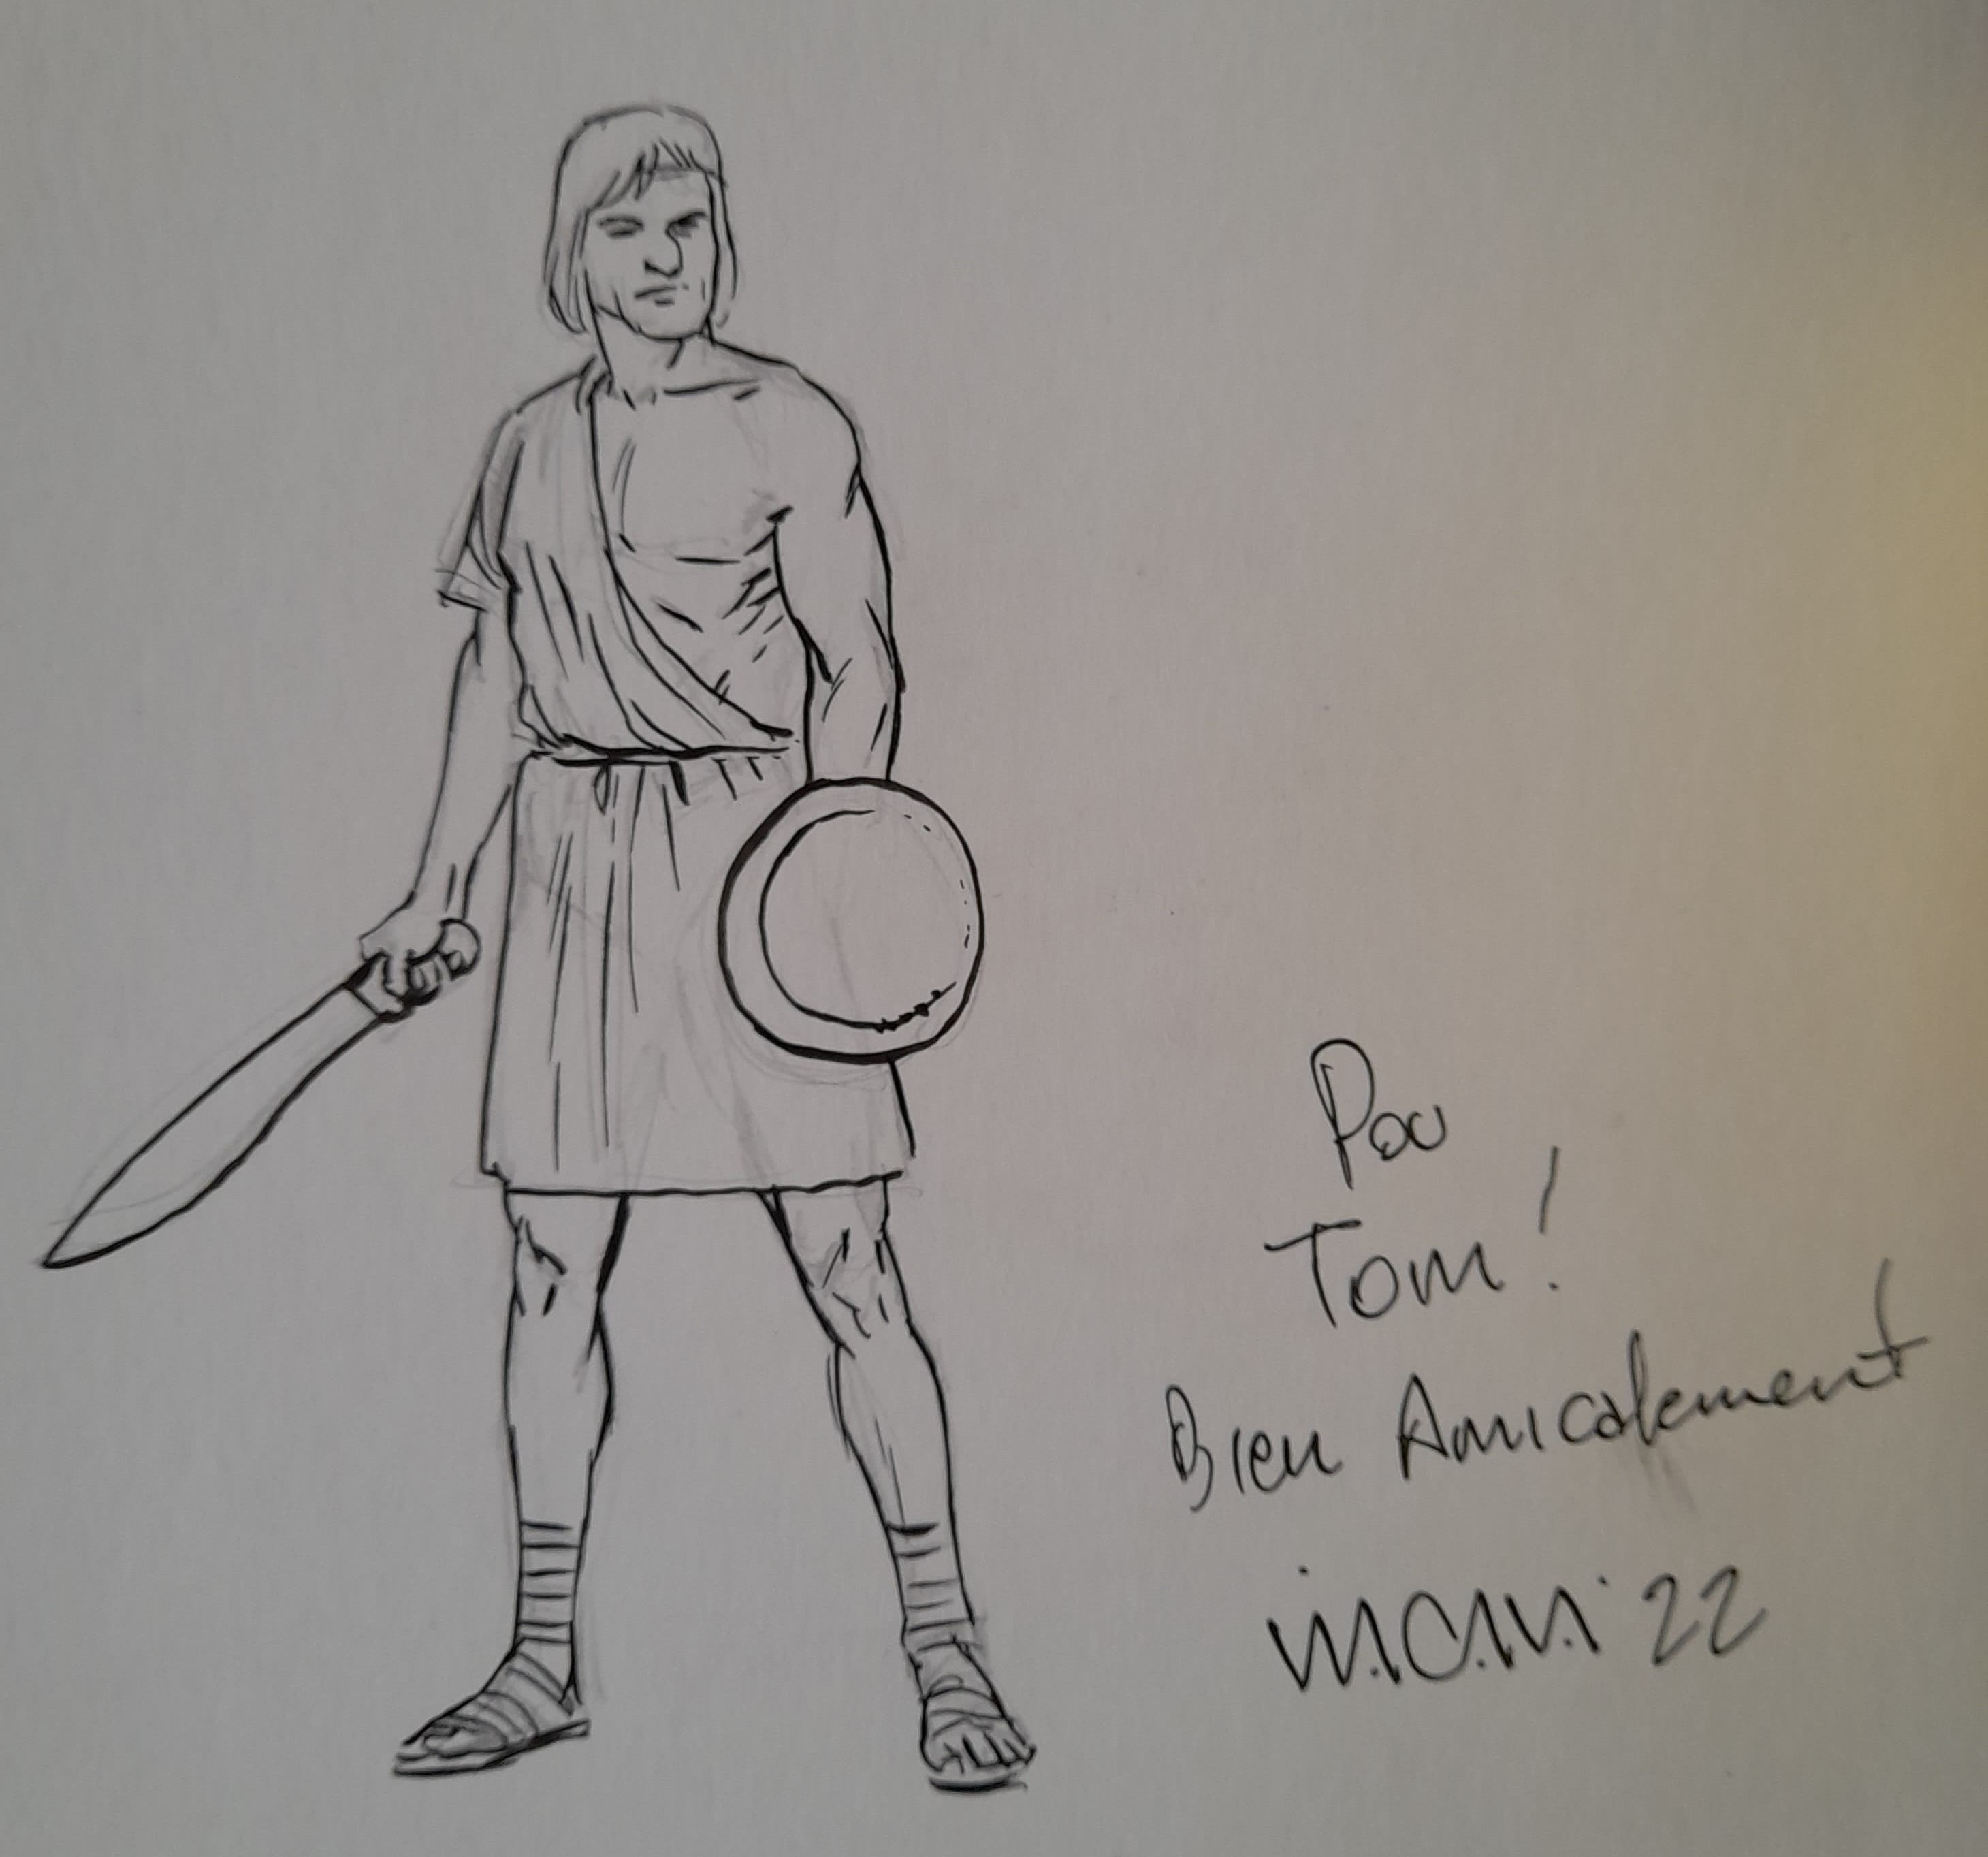 Pou
Tom !
Bien Amicalement
22